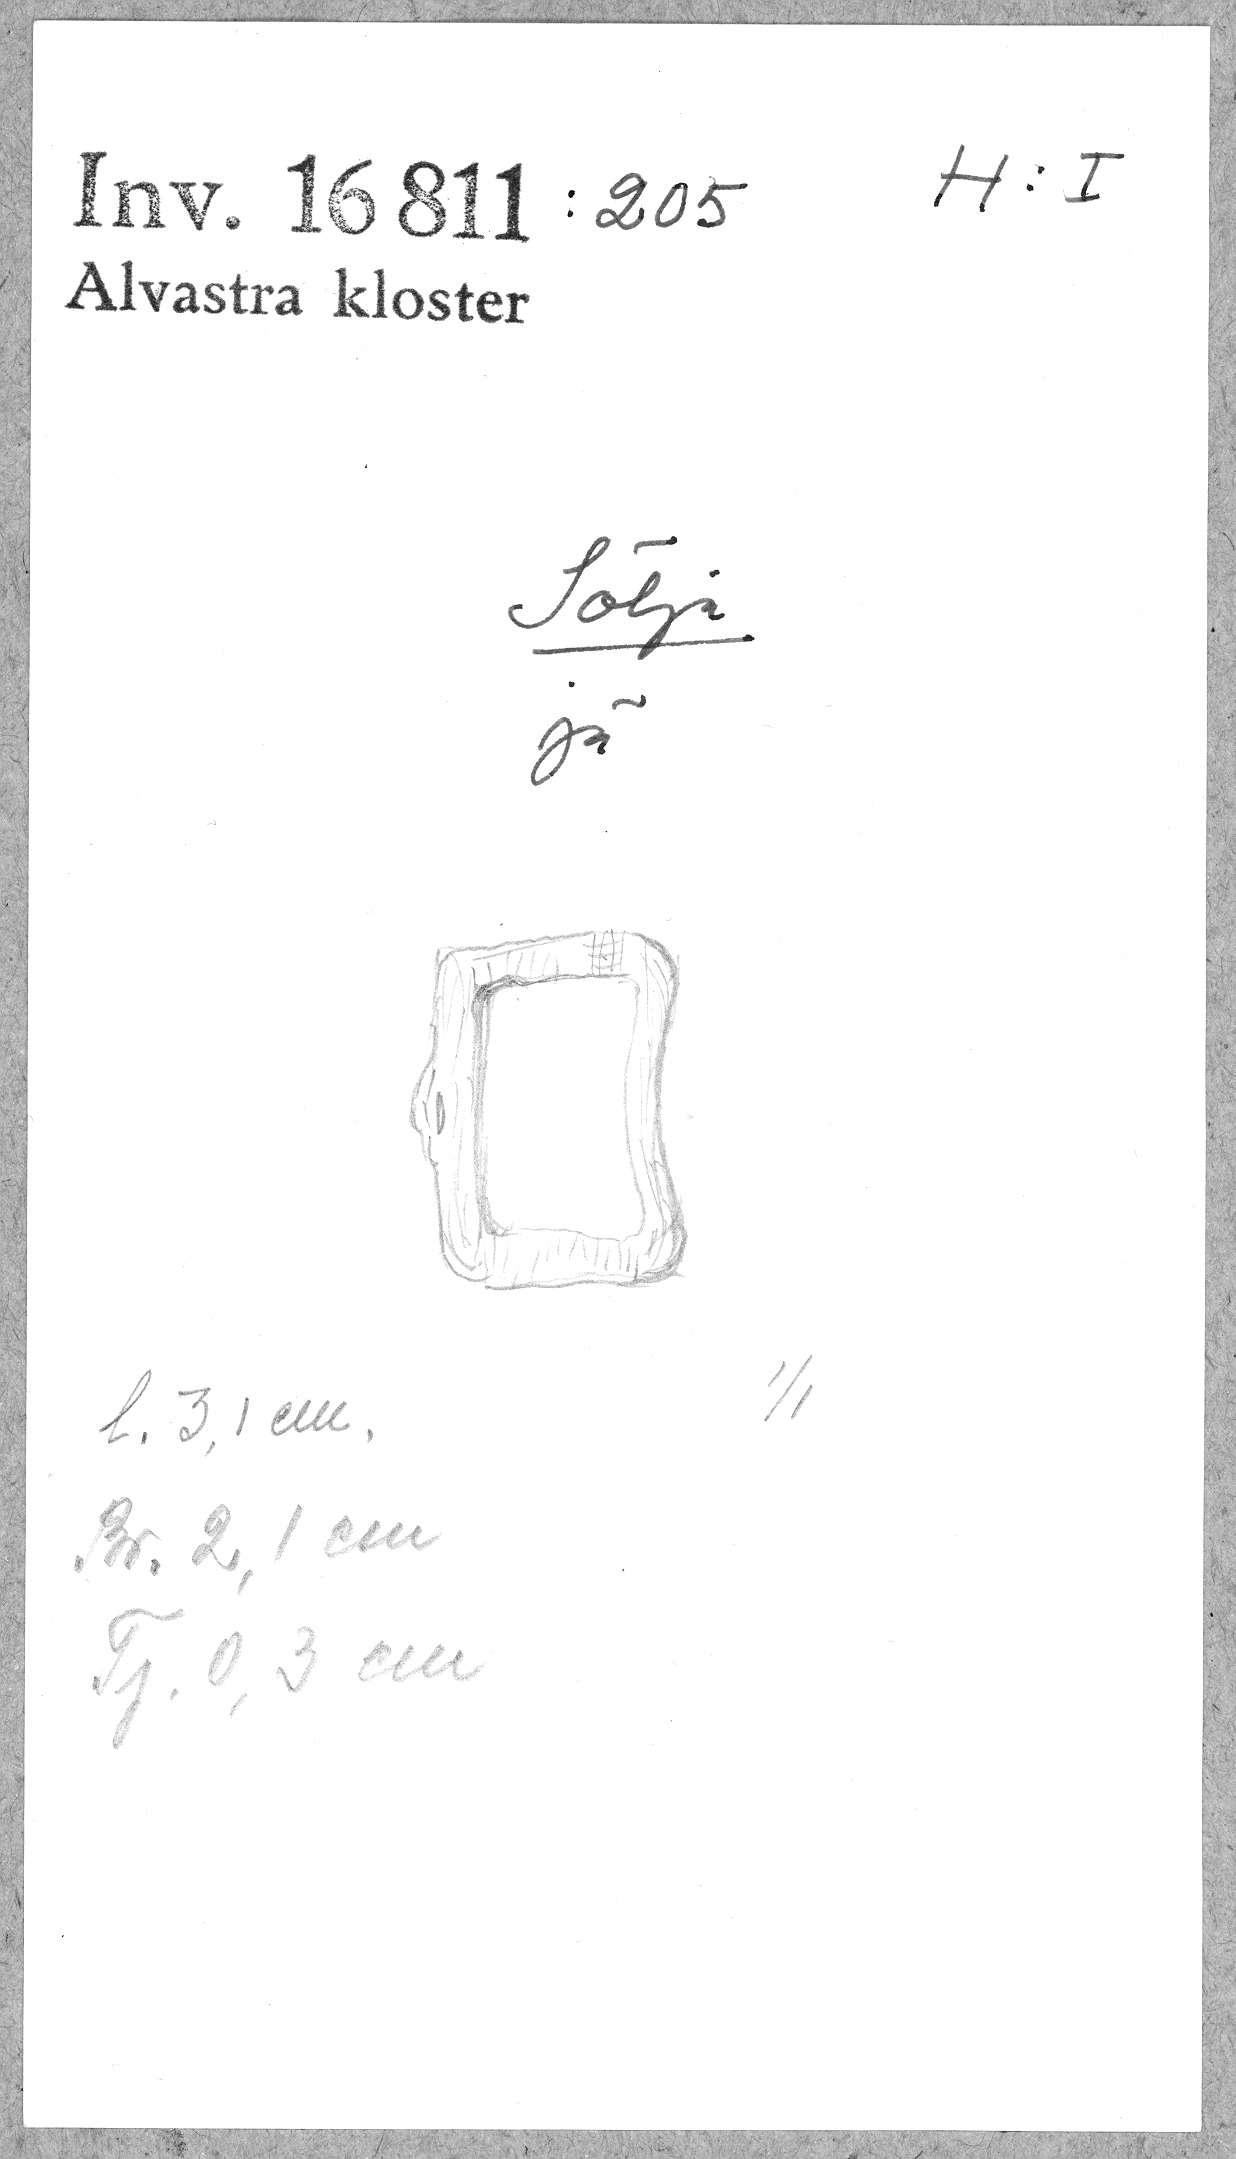 Inv. 16 811 : 205 H : I
Alvastra kloster
Sölja
jä
1/1
l. 3,1 cm.
Br. 2,1 cm
Tj. 0,3 cm